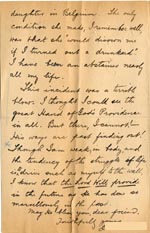 daughter in Belgium. The only
condition she made, I remember well
was that she would disown me
if I turned out a drunkard!
I have been an abstainer nearly
all my life.
This incident was a terrible
blow. I thought I could see the
great Hand of God's Providence
in all. But there I cannot.
His ways are past finding out!
Though I am weak in body and
the tendency of the struggle of life
is driven such as myself to the wall,
I know that the Lord Will provide
in the future as he has done so
marvellously in the past
May He bless you, dear friend.
Faithfully yours